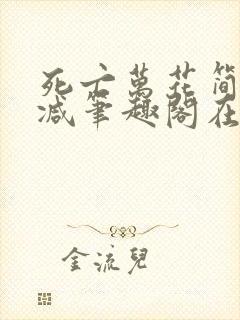 死亡萬花筒
減筆趣閣在
金流兒